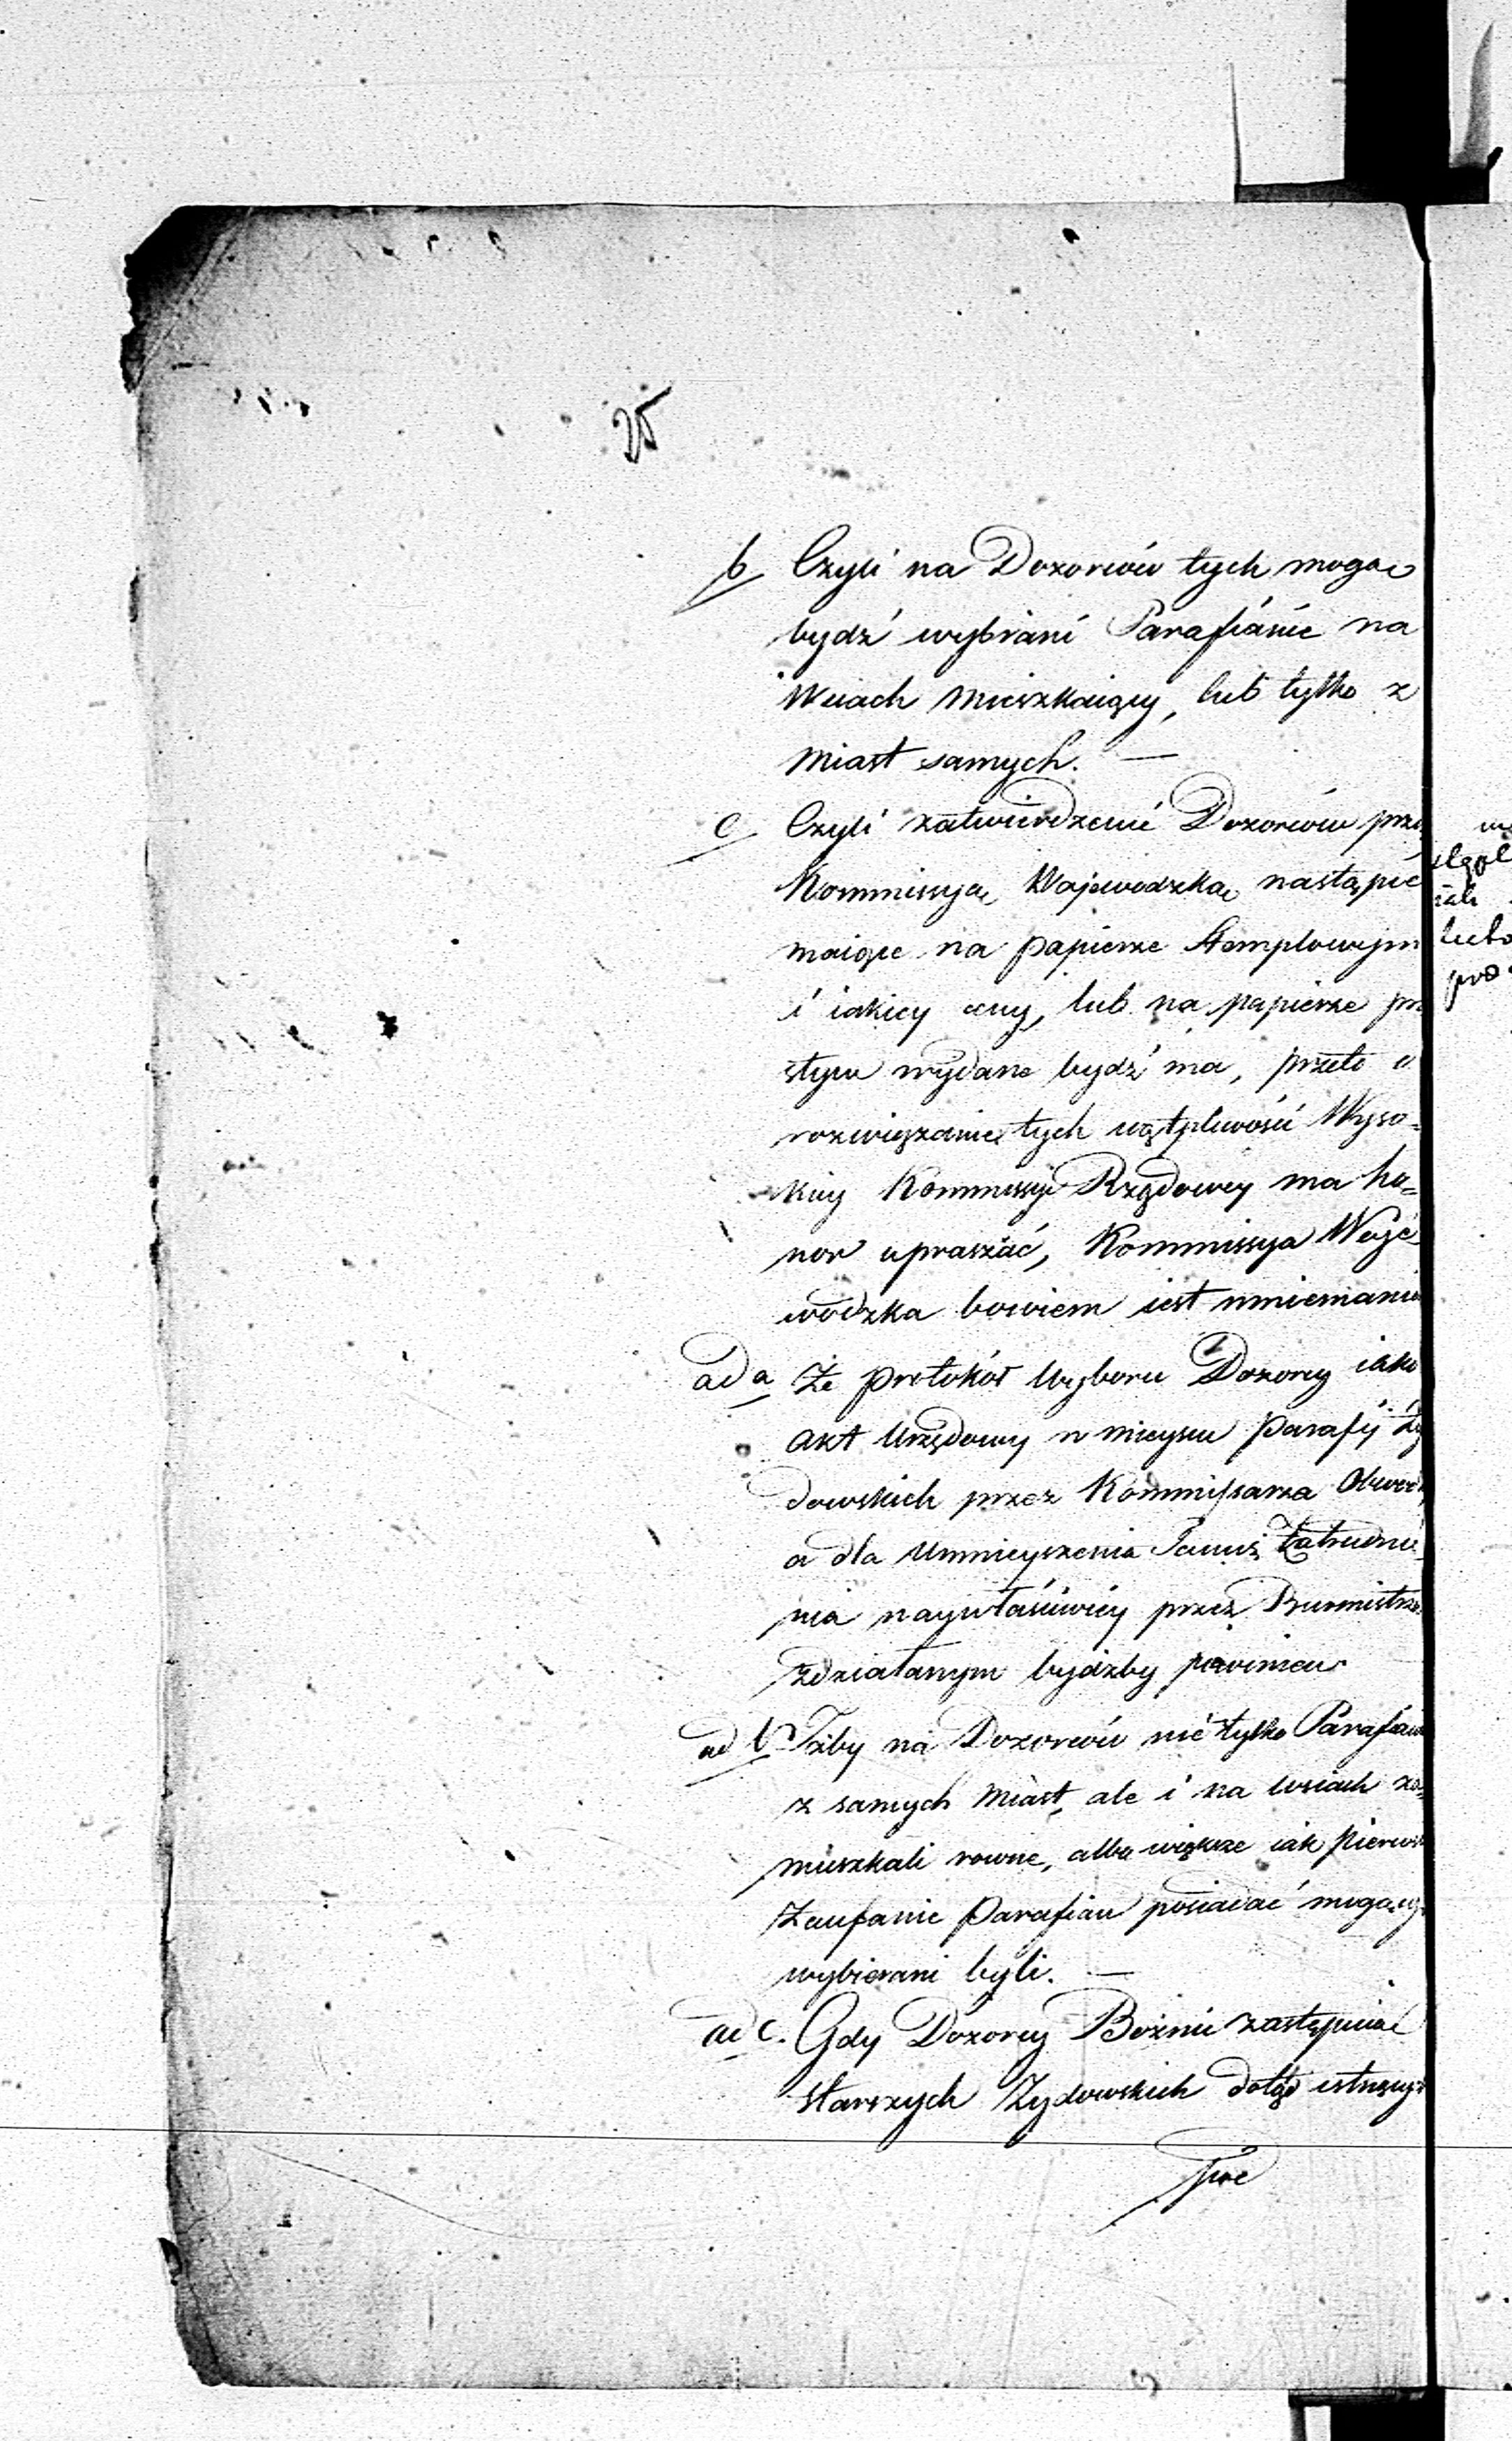 25
b Czyli na Dozorców tych mogą
bydź wybrani Parafianie na
Wsiach mieszkaiący, lub tylko z
Miast samych. —
c Czyli zatwierdzenie Dozorców prze
Kommissyą Wojewodzką nastąpić
maiące na papierze stemplowym
i iakiey ceny, lub na papierze pro
stym wydane bydź ma, przeto o
rozwiązanie tych wątpliwości Wyso-
kiey Kommissyi Rządowey ma ho-
nor upraszać, Kommissya Woje
wódzka bowiem iest mniemania
ad a Że protokół Wyboru Dozorcy iako
akt Urzędowy w mieyscu Parafij Ży
dowskich przez Kommissarza Obwodu
a dla Umnieyszenia Zatrudnie
nia naywłaściwiey przez Burmistrza
zdziałanym bydźby powinien
ad b Iżby na Dozorców nie tylko Parafianie
z samych Miast, ale i na wsiach za-
mieszkali rowne, albo większe iak pierwsi
Zaufanie Parafian posiadać mogący
wybierani byli. —
ad c. Gdy Dozorcy Bożnic zastępuiąc
starszych Żydowskich dotąd istnący